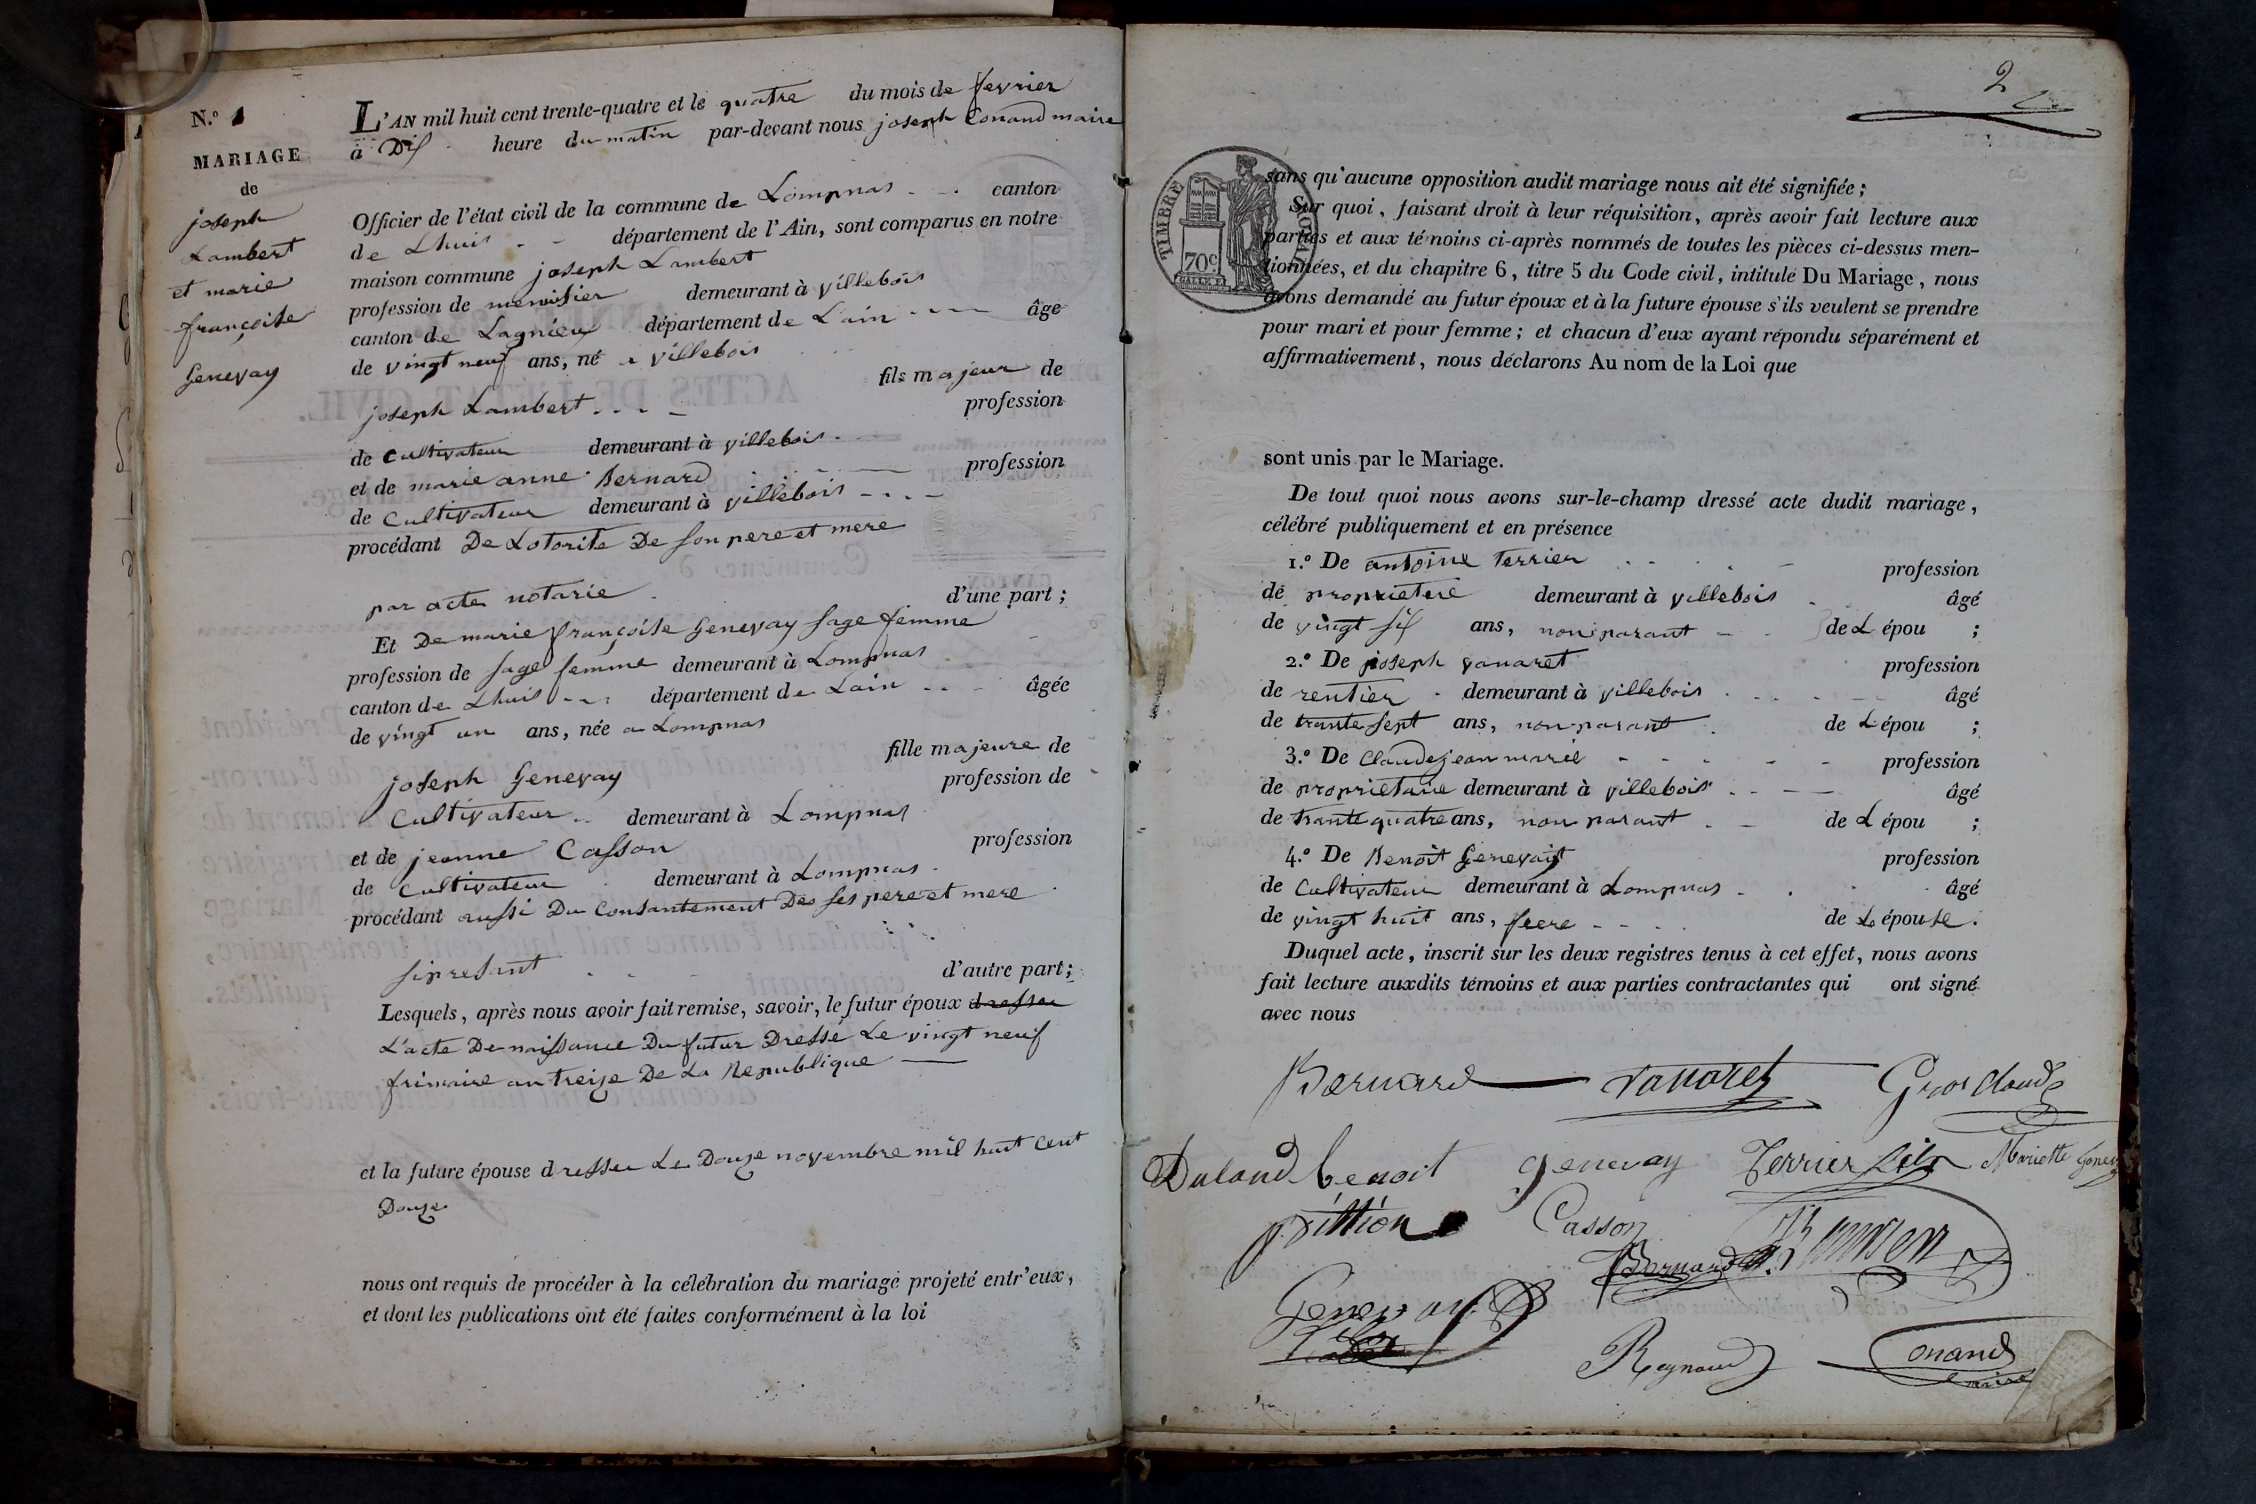 N.o 1
MARIAGE
de
joseph
Lambert
et marie
françoise
Genevay
L'AN mil huit cent trente-quatre et le quatre du mois de fevrier
à Dis heure du matin par-devant nous joseph Conand maire
Officier de l'état civil de la commune de Lompnas canton
de Lhuis département de l'Ain, sont comparus en notre
maison commune joseph Lambert
profession de menuisier demeurant à villebois
canton de Lagnieu département de L'ain âgé
de vingt neuf ans, né a villebois
fils majeur de
joseph Lambert
profession
de cultivateur demeurant à villebois
et de marie anne Bernard profession
de cultivateur demeurant à villebois
procédant De Lotorite De son pere et mere
par acte notarie d'une part ;
Et De marie françoise Genevay sage femme
profession de sage femme demeurant à Lompnas
canton de Lhuis département de Lain âgée
de vingt un ans, née a Lompnas
fille majeure de
joseph Genevay profession de
Cultivateur demeurant à Lompnas
et de jeanne Casson profession
de cultivateur demeurant à Lompnas
procédant aussi Du Consantement Des ses pere et mere
si presant d'autre part ;
Lesquels, après nous avoir fait remise, savoir, le futur époux dresser
L'acte De naissance Du futur Dressé Le vingt neuf
frimaire an treize De La Republique
et la future épouse dresser Le Douze novembre mil huit cent
Douze
nous ont requis de procéder à la célébration du mariage projeté entr'eux,
et dont les publications ont été faites conformément à la loi
2
TIMBRE ROYAL
70c
sans qu'aucune opposition audit mariage nous ait été signifiée ;
Sur quoi, faisant droit à leur réquisition, après avoir fait lecture aux
parties et aux témoins ci-après nommés de toutes les pièces ci-dessus men-
tionnées, et du chapitre 6, titre 5 du Code civil, intitulé Du Mariage, nous
avons demandé au futur époux et à la future épouse s'ils veulent se prendre
pour mari et pour femme ; et chacun d'eux ayant répondu séparément et
affirmativement, nous déclarons Au nom de la Loi que
sont unis par le Mariage.
De tout quoi nous avons sur-le-champ dressé acte dudit mariage,
célébré publiquement et en présence
1.o De antoine terrier profession
de proprietere demeurant à villebois âgé
de vingt sis ans, non parant de L épou ;
2.o De joseph vanaret profession
de rentier demeurant à villebois âgé
de trante sept ans, non parant de L épou ;
3.o De Claude jean marie profession
de proprietaire demeurant à villebois âgé
de trante quatre ans, non parant de L épou ;
4.o De Benoit Genevay profession
de Cultivateur demeurant à Lompnas âgé
de vingt huit ans, frere de L épouse.
Duquel acte, inscrit sur les deux registres tenus à cet effet, nous avons
fait lecture auxdits témoins et aux parties contractantes qui ont signé
avec nous
Bernard Vanaret Gros Claude
benoit genevay Terrier Mariette
Casson
Bernard
Genevay
Reynaud Conand
maire